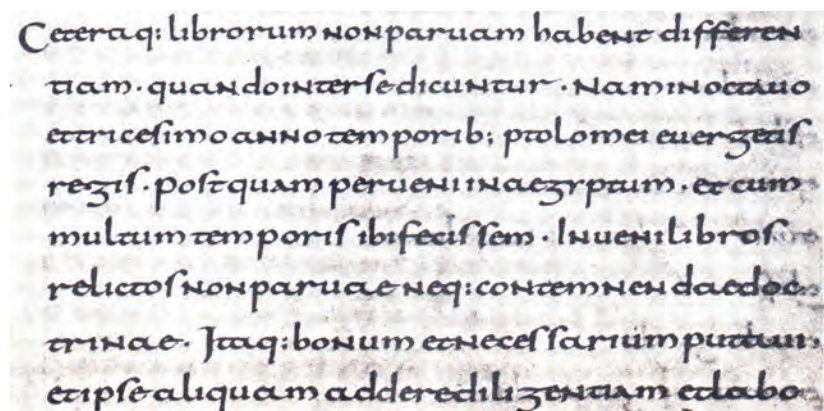 Ceteraq: librorum non paruam habent differen
tiam · quando inter se dicuntur · Nam in octauo
et tricesimo anno temporib; ptolomei euergetis
regis · postquam perueni in aegyptum · et cum
multum temporis ibi fecissem · Inueni libros
relictos non paruae neq: contemnendae doc
trinae · Itaq: bonum et necessarium putaui
et ipse aliquam addere diligentiam et labo